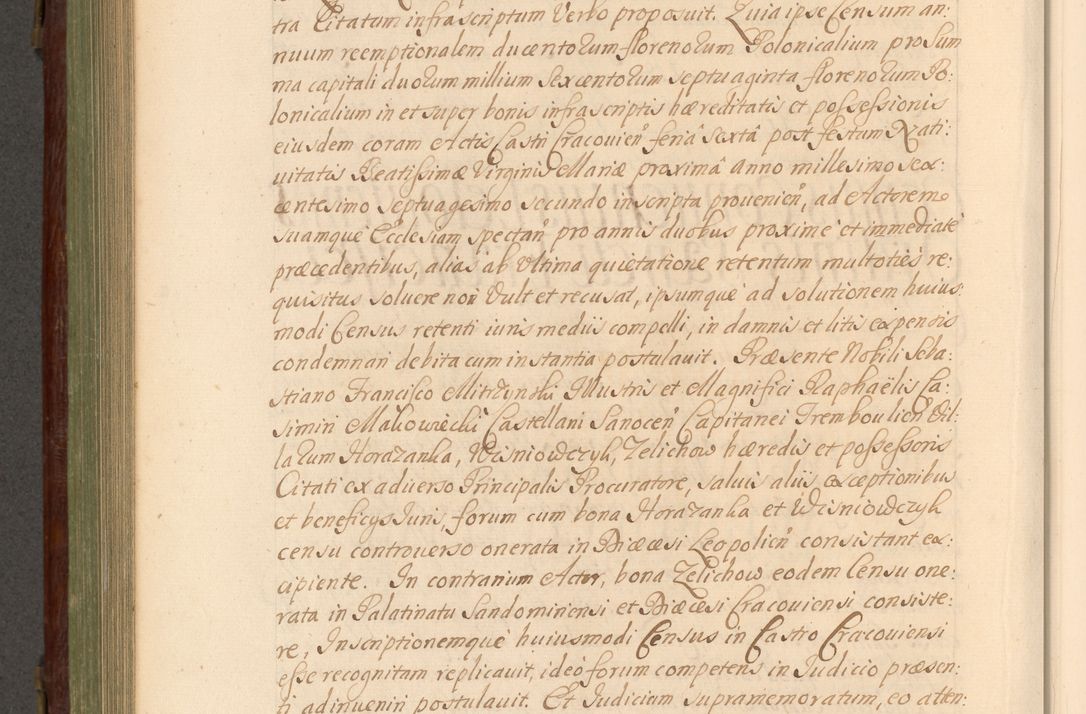 tra Citatum infrascriptum Verbo proposuit. Quia ipse Censum an:
nuum reemptionalem ducentorum florenorum Polonicalium pro sum
ma capitali duorum millium sexcentorum septuaginta florenorum Po:
lonicalium in et super bonis infrascriptis hæreditatis et possessionis
eiusdem coram Actis Castri Cracovien̄ feriâ sextâ post festum Nati:
uitatis Beatissimæ Virginis Mariæ proximâ anno millesimo sex:
centesimo septuagesimo secundo inscripta provenien̄, ad Actorem
suamquè Ecclesiam spectan̄ pro annis duobus proximè et immediatè
præcedentibus, alias ab Ultima quietatione retentum multotiès re:
quisitus soluere non Vult et recusat, ipsumquè ad solutionem huius:
modi Census retenti iuris mediis compelli, in damnis et litis expensis
condemnari debita cum instantia postulauit. Præsente Nobili Seba:
stiano Francisco Mitrzynski Illustris et Magnifici Raphaëlis Ca:
simiri Makowiecki Castellani Sanocen̄ Capitanei Tremboulicn̄ Vil:
larum Horazanka, Wisniowdczyk, Zelichow hæredis et possessoris
Citati ex aduerso Principalis Procuratore, saluis aliis exceptionibus
et beneficys Iuris, forum cum bona Horazanka et Wisniowdczyk
censu controuerso onerata in Diœcesi Leopolien̄ consistant ex:
cipiente. In contrarium Actor, bona Zelichow eodem Censu one:
rata in Palatinatu Sandominensi et Diœcesi Cracouiensi consiste:
re, Inscriptionemquè huiusmodi Census in Castro Cracouiensi
esse recognitam replicauit, ideò forum competens in Iudicio præsen:
ti adinueniri postulauit. Et Iudicium supramemoratum, eo atten: